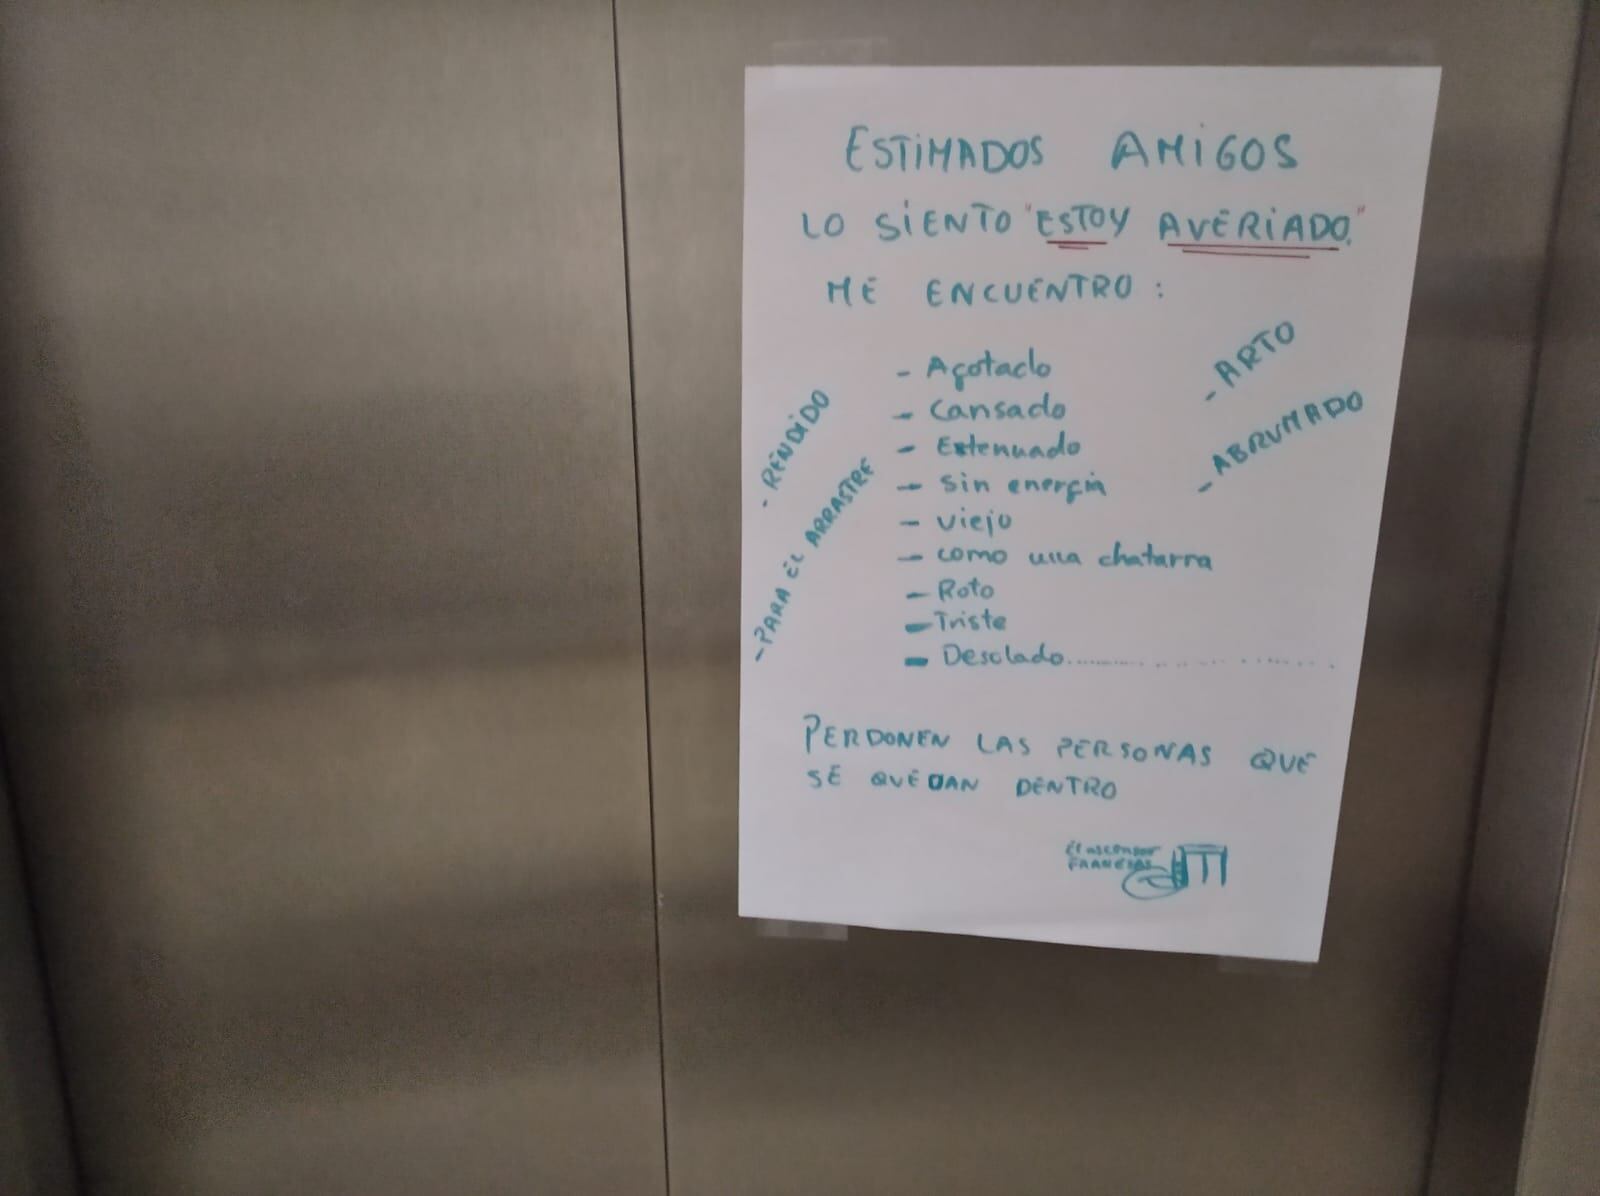 ESTIMADOS AMIGOS
LO SIENTO "ESTOY AVERIADO."
ME ENCUENTRO:
- Agotado
- Cansado
- Extenuado
- Sin energía
- Viejo
- como una chatarra
- Roto
- Triste
- Desolado..........................
- RENDIDO
- PARA EL ARRASTRE
- ARTO
- ABRUMADO
PERDONEN LAS PERSONAS QUE
SE QUEDAN DENTRO
El ascensor